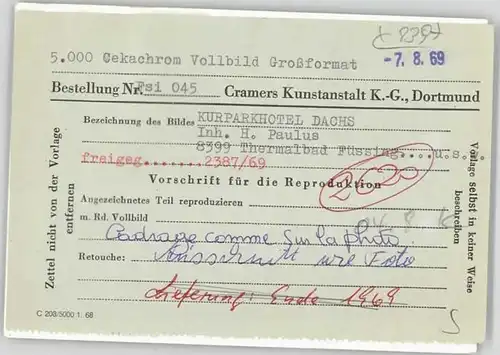 2397
5.000 Cekachrom Vollbild Großformat
-7.8.69
Bestellung Nr. Fsi 045 Cramers Kunstanstalt K.-G., Dortmund
Bezeichnung des Bildes KURPARKHOTEL DACHS
Inh. H. Paulus
8399 Thermalbad Füssing....u.s.
freigeg.......2387/69
2020
Vorschrift für die Reproduktion
Angezeichnetes Teil reproduzieren
m. Rd. Vollbild
Cadrage comme sur la photo
Retouche: Ausschnitt wie Foto
Lieferung: Ende 1969
C 203/5000 1. 68
Zettel nicht von der Vorlage
entfernen
Vorlage selbst in keiner Weise
beschreiben